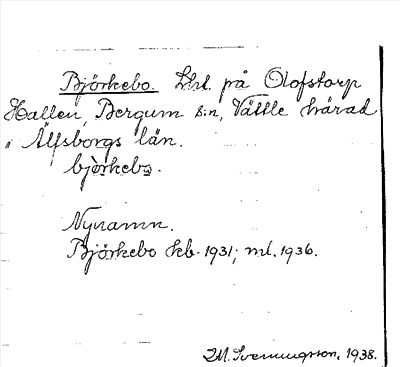 Björkebo. Lht. på Olofstorp
Hallen, Bergum s:n, Vättle härad
i Älfsborgs län.
bjö̀rkebo.
Nynamn.
Björkebo kb. 1931; ml. 1936.
M. Svenungsson, 1938.